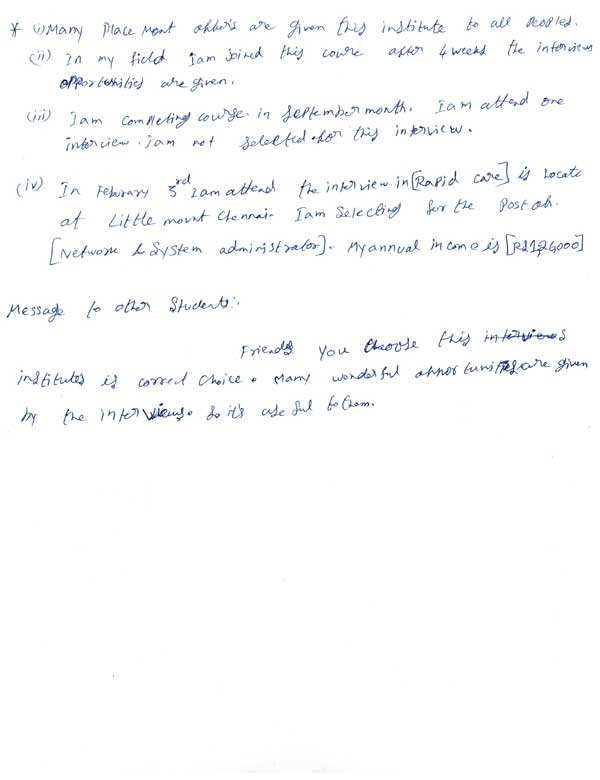 * (i) Many Place Ment offers are given this institute to all Peoples.
(ii) In my field I am Joined this course after 4 weeks the interviews
opportunities are given.
(iii) I am completing course in September month. I am attend one
interview. i am not selected for this interview.
(iv) In Feburary 3rd I am attend the interview in [Rapid care] is Locate
at Little mount Chennai. I am Selecting for the Post of.
[Network & System administrator]. My annual income is
Message to other Students:.
Friends you choose this interviews
institutes is correct choice. Many wonderful opportunities are given
by the interviews. So it's use ful to them.